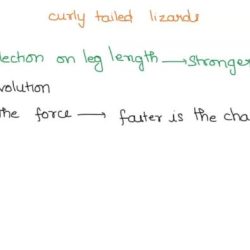 curly tailed lizards
lection on leg length → stronger
volution
the force → faster is the cha